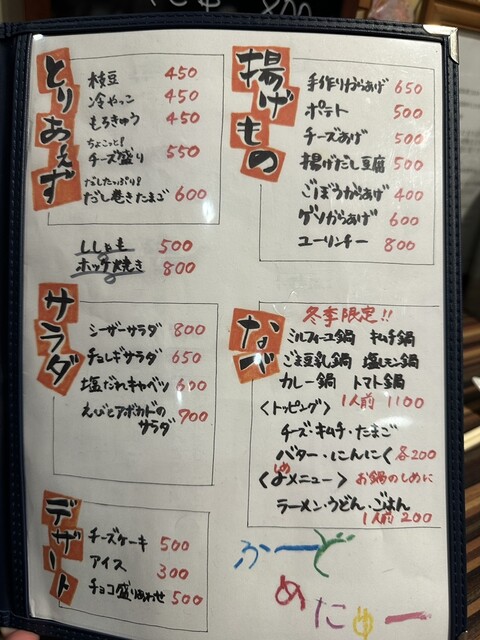 とりあえず
枝豆 450
冷やっこ 450
もろきゅう 450
ちょこっと!
チーズ盛り 550
だしたっぷり!
だし巻きたまご 600
ししゃも 500
ホッケ焼き 800
サラダ
シーザーサラダ 800
チョレギサラダ 650
塩だれキャベツ 600
えびとアボカドの
サラダ 900
デザート
チーズケーキ 500
アイス 300
チョコ盛りあわせ 500
揚げもの
手作りからあげ 650
ポテト 500
チーズあげ 500
揚げだし豆腐 500
ごぼうからあげ 400
ゲソからあげ 600
ユーリンチー 800
なべ
冬季限定!!
ミルフィーユ鍋 キムチ鍋
ごま豆乳鍋 塩レモン鍋
カレー鍋 トマト鍋
1人前 1100
〈トッピング〉
チーズ・キムチ・たまご
バター・にんにく 各200
〈〆メニュー〉 お鍋のしめに
しめ
ラーメン・うどん・ごはん
1人前 200
ふーど
めにゅー